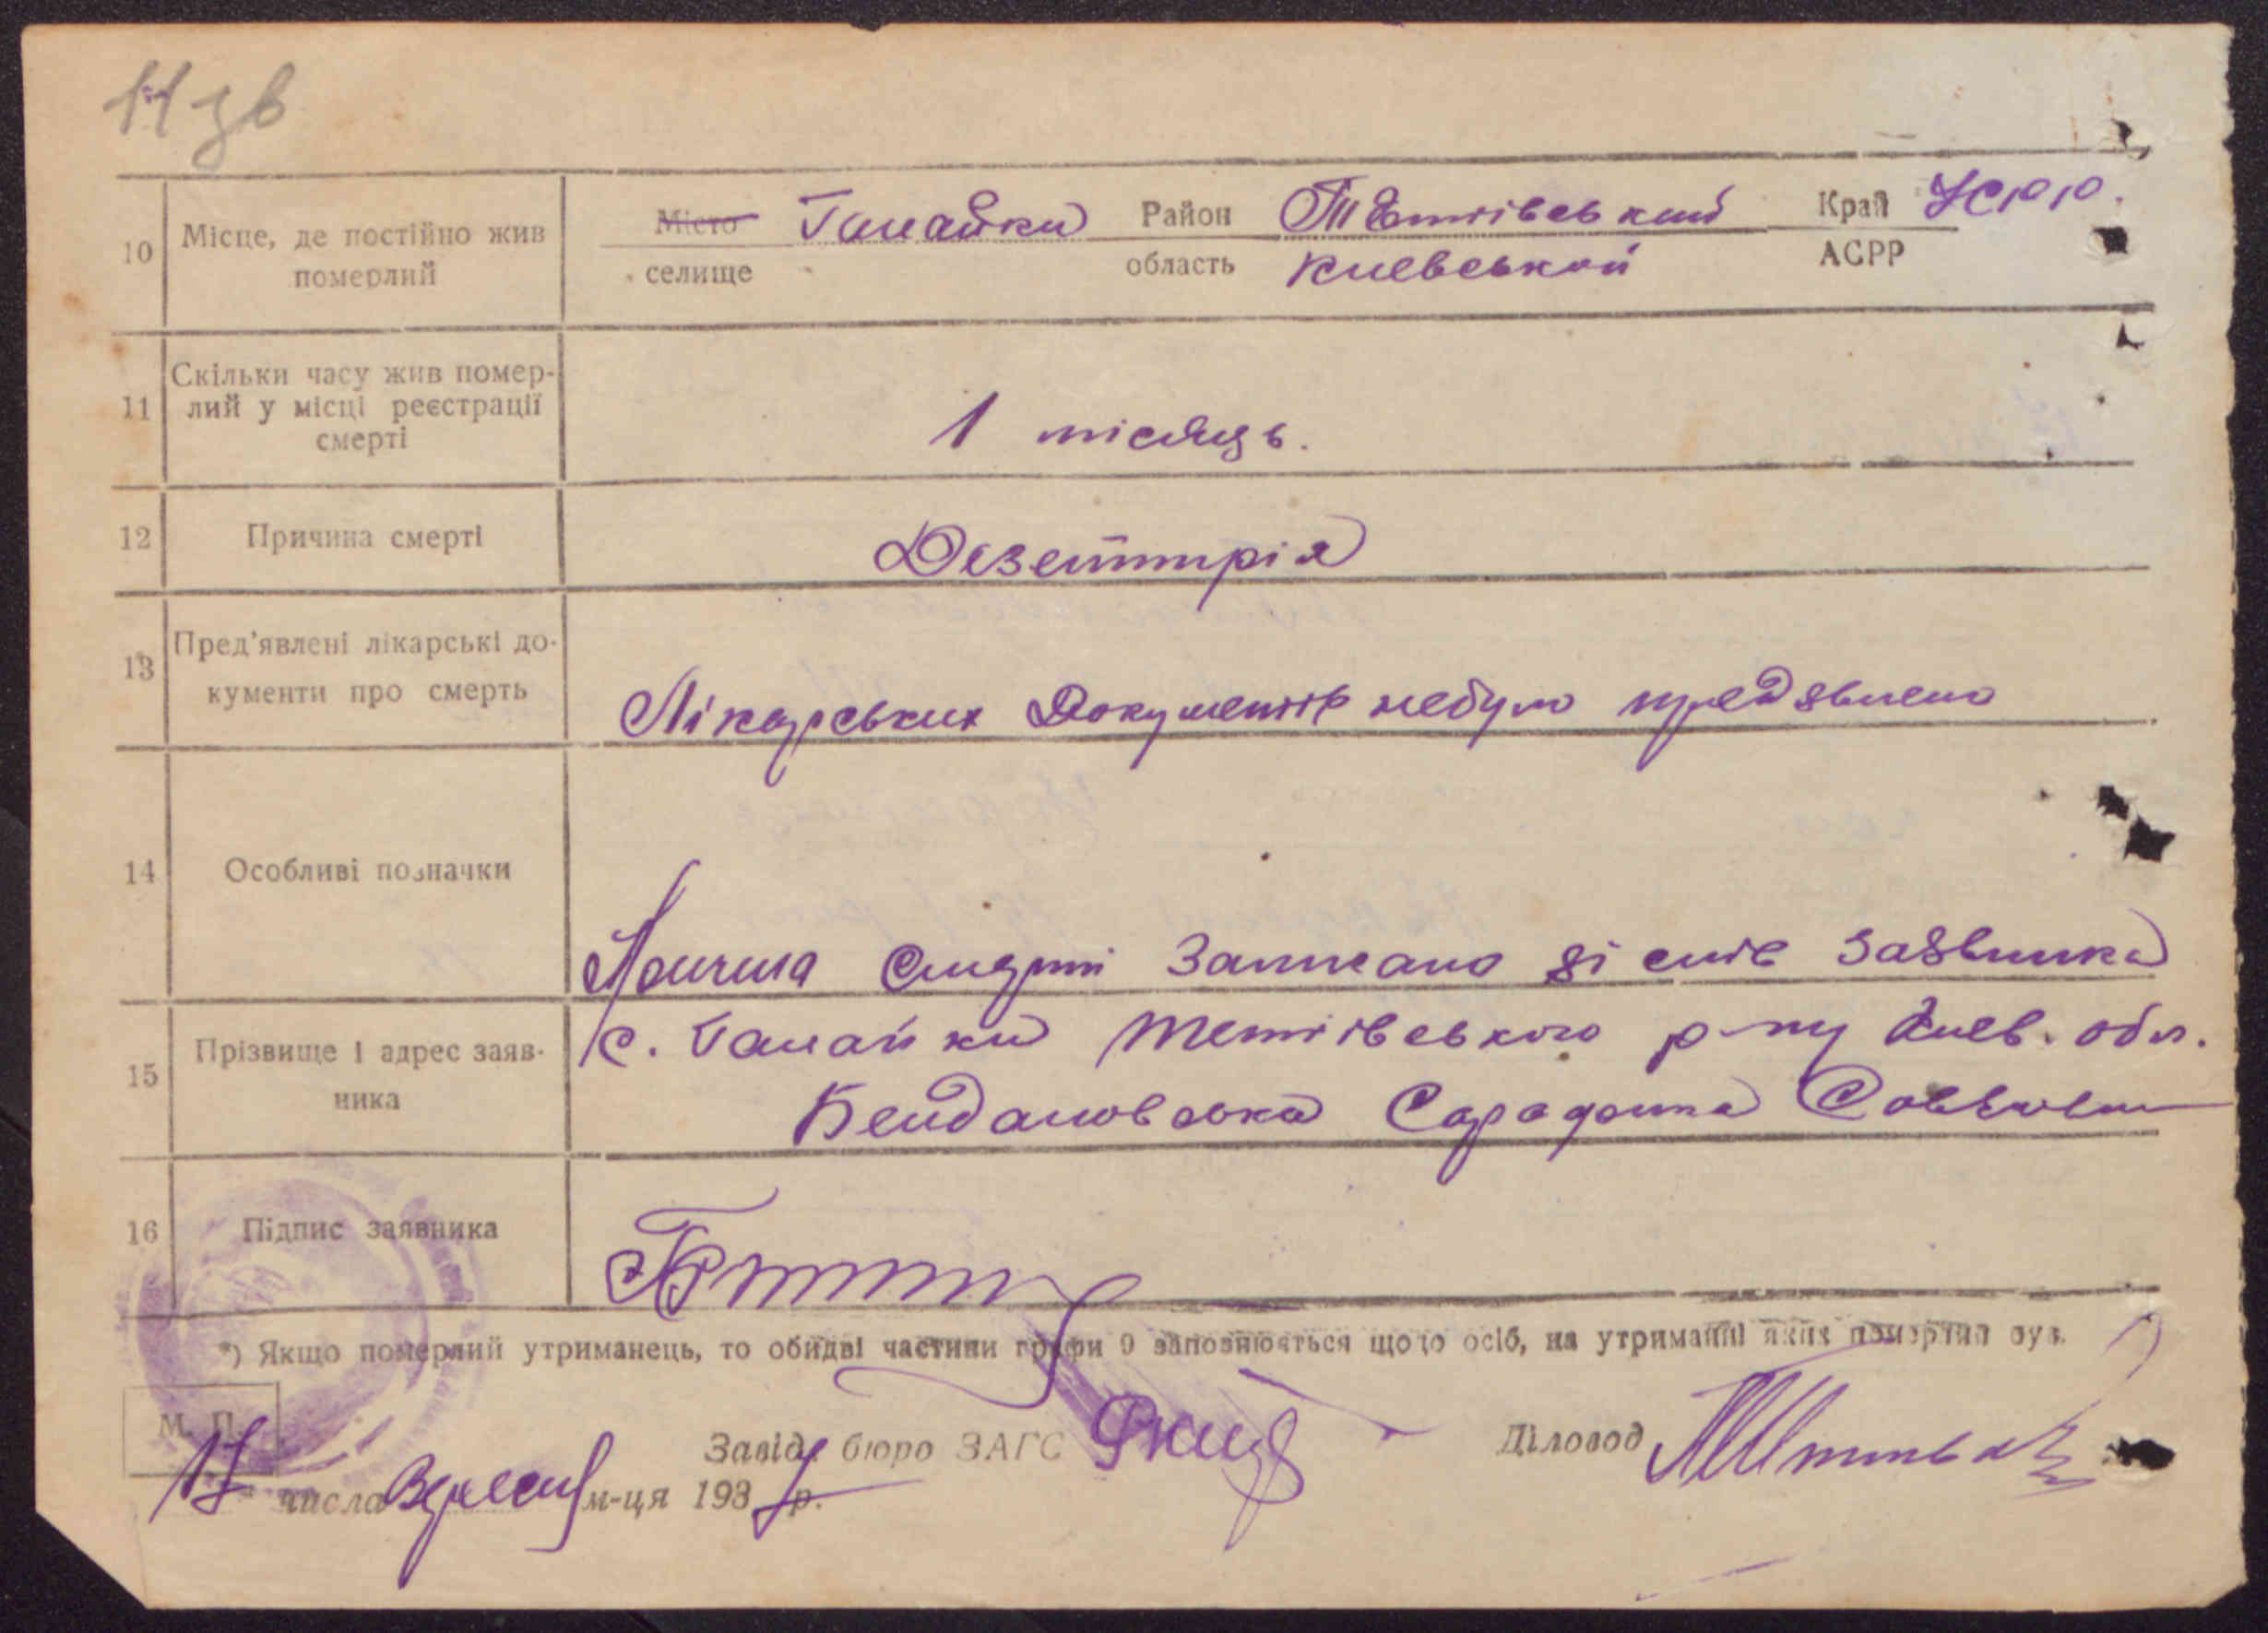 11 зв
10 Місце, де постійно жив померлий Місто селище Галайки Район Тетіївський область Киевської Край АСРР УСРР.
11 Скільки часу жив померлий у місці реєстрації смерті 1 місяць.
12 Причина смерті Дезентирія
13 Пред'явлені лікарські документи про смерть Лікарських документів небуло предявлено
14 Особливі позначки Причина смерти записано зі слів заявника
15 Прізвище і адрес заявника с. Галайки Тетіївського р-ну Киев. обл.
16 Підпис заявника
*) Якщо померлий утриманець, то обидві частини графи 9 заповнюються щодо осіб, на утриманні яких померлий був.
М. П.
Завід. бюро ЗАГС Діловод
17 числа Вересня м-ця 193 р.